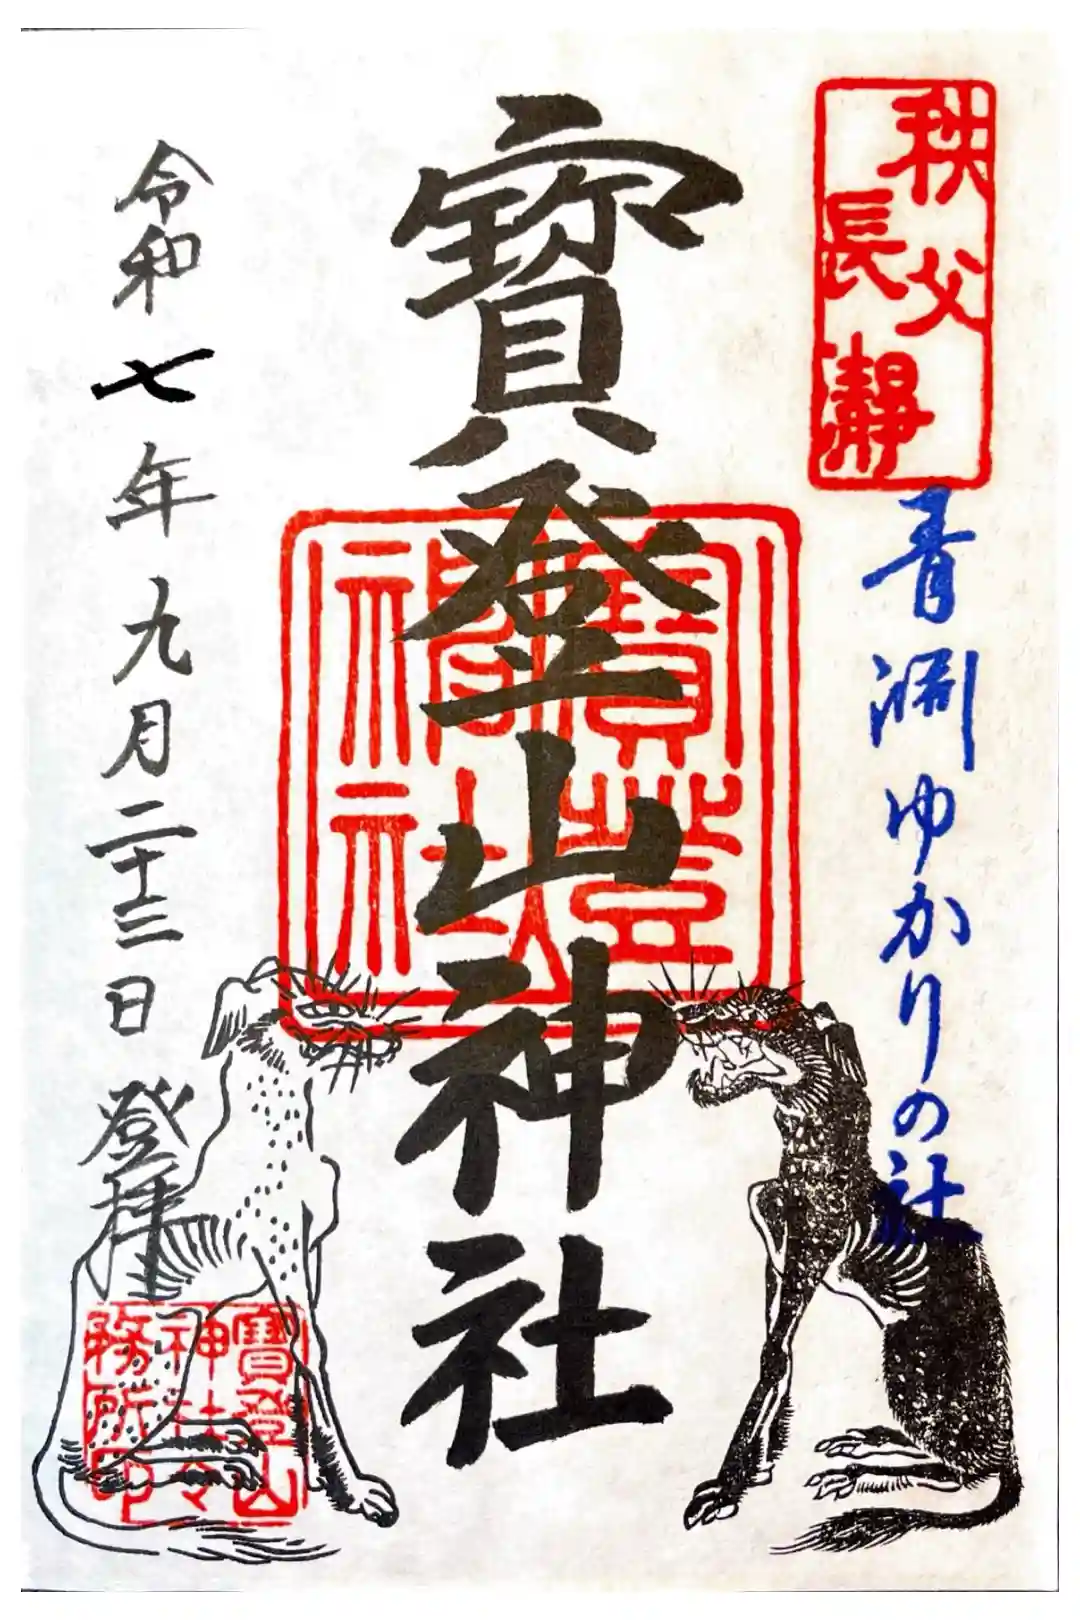 秩父
長瀞
青淵ゆかりの社
寳登山神社
令和七年九月二十三日
登拝
寳登山
神社
務所印